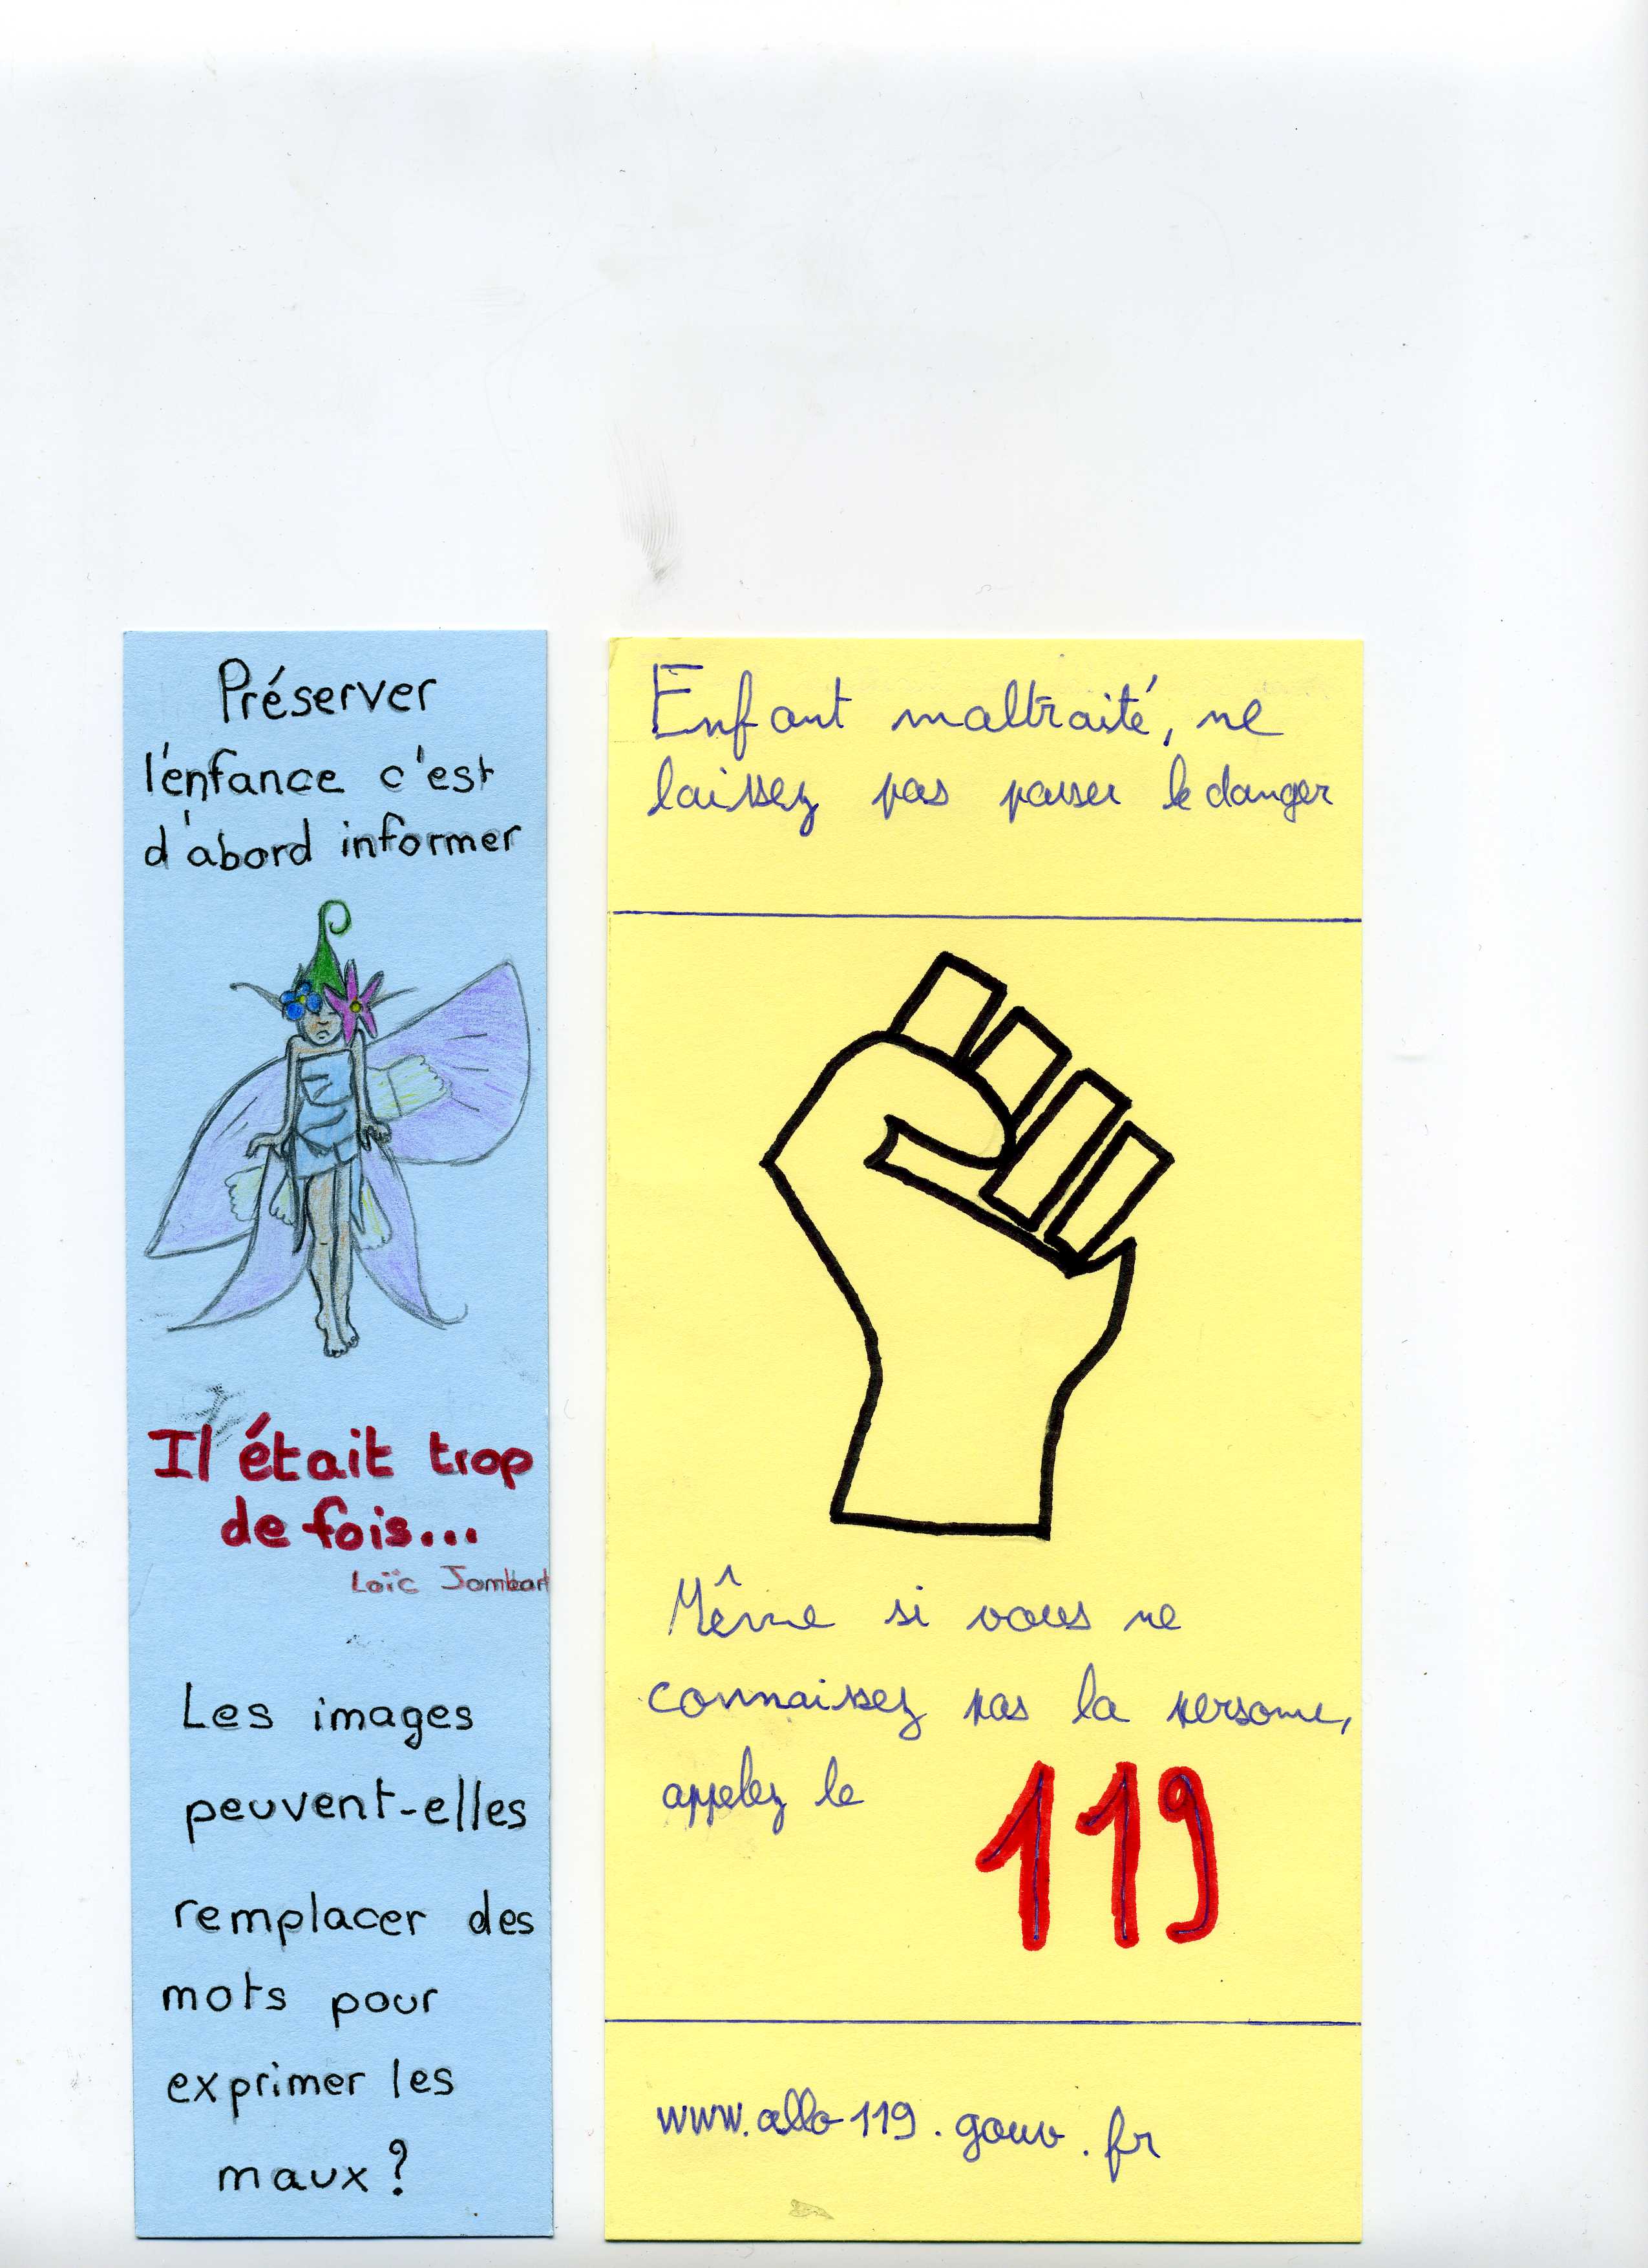 Préserver
l'enfance c'est
d'abord informer
Il était trop
de fois...
Loïc Jombart
Les images
peuvent-elles
remplacer des
mots pour
exprimer les
maux ?
Enfant maltraité, ne
laissez pas passer le danger
Même si vous ne
connaissez pas la personne,
appelez le 119
www.allo119.gouv.fr